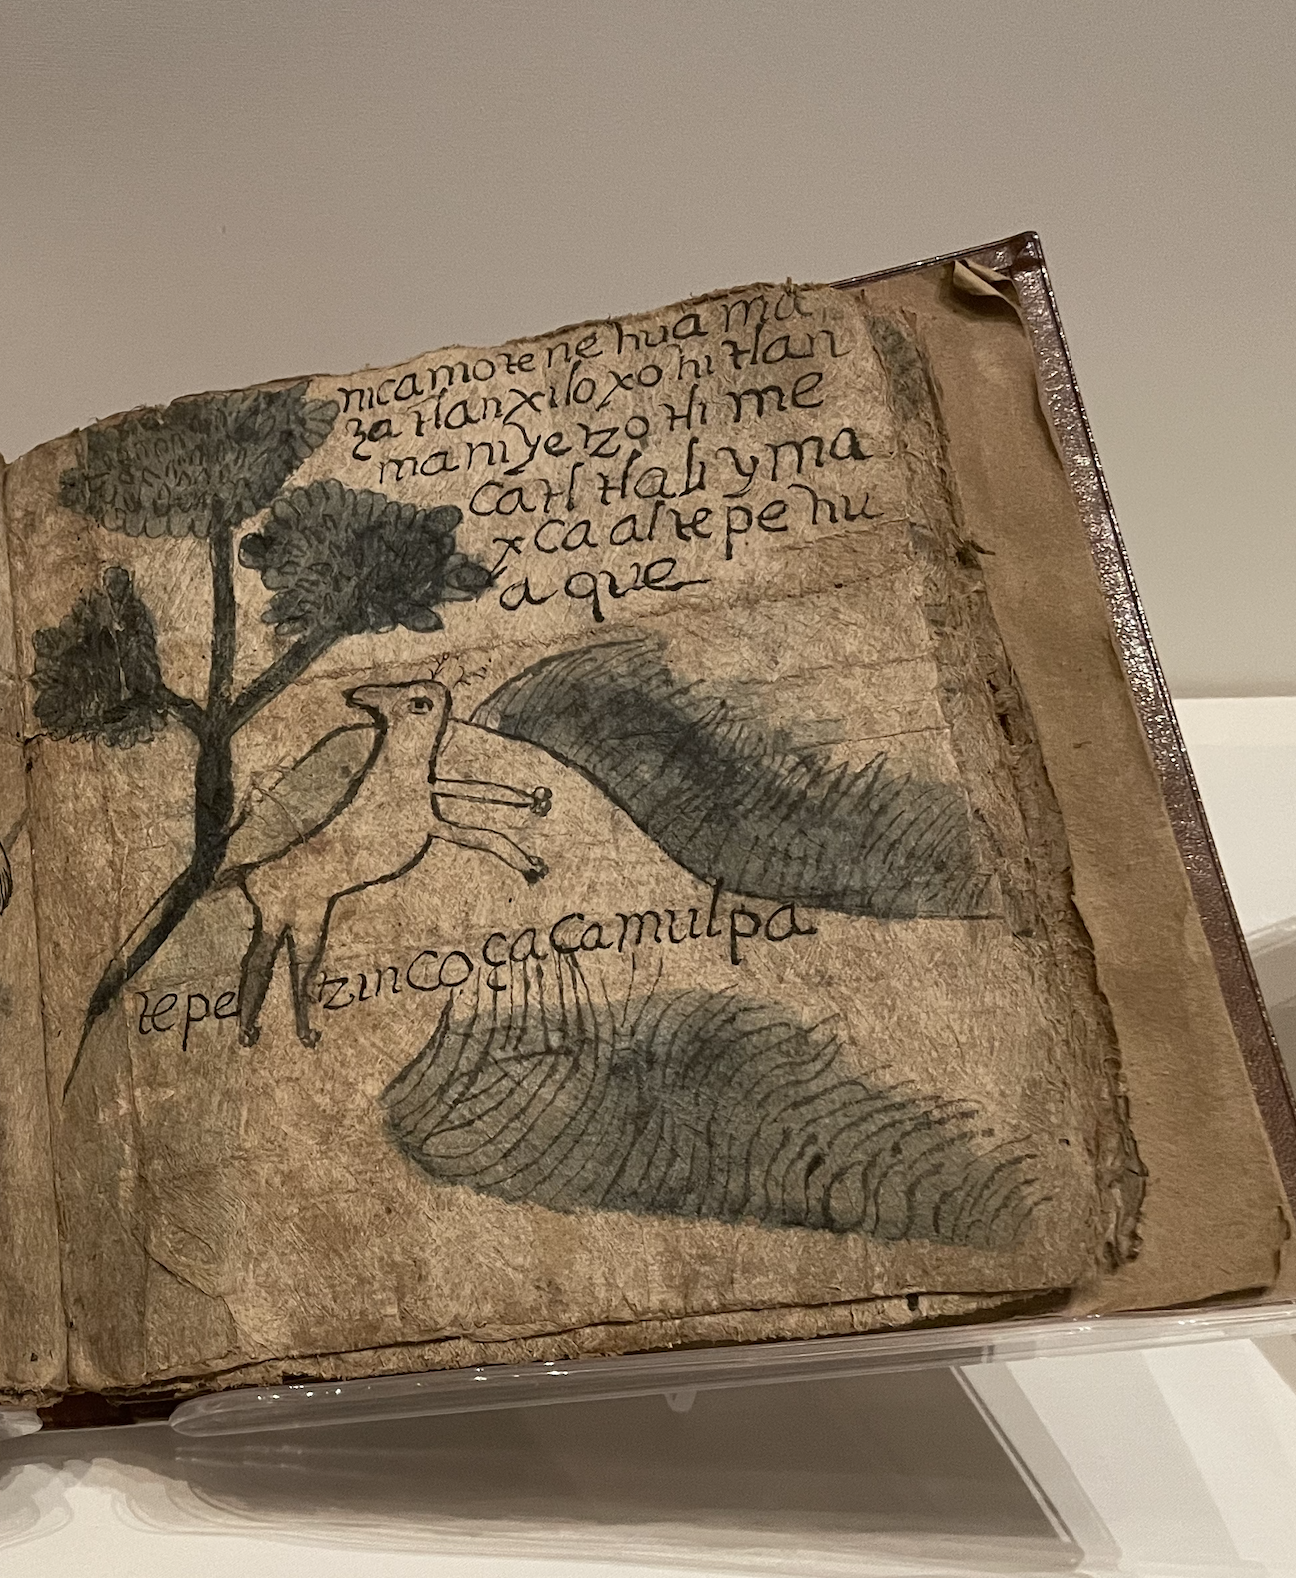 nicamotenehua ma
zatlanxiloxohitlan
maniyetzotlime
catl tlaliyma
xcaaltepehu
aque
tepetzincoçaçamulpa